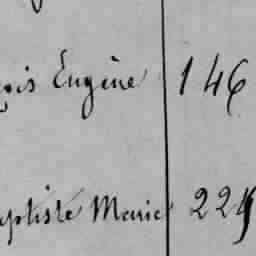 çois Eugène 146
aptiste Marie 229